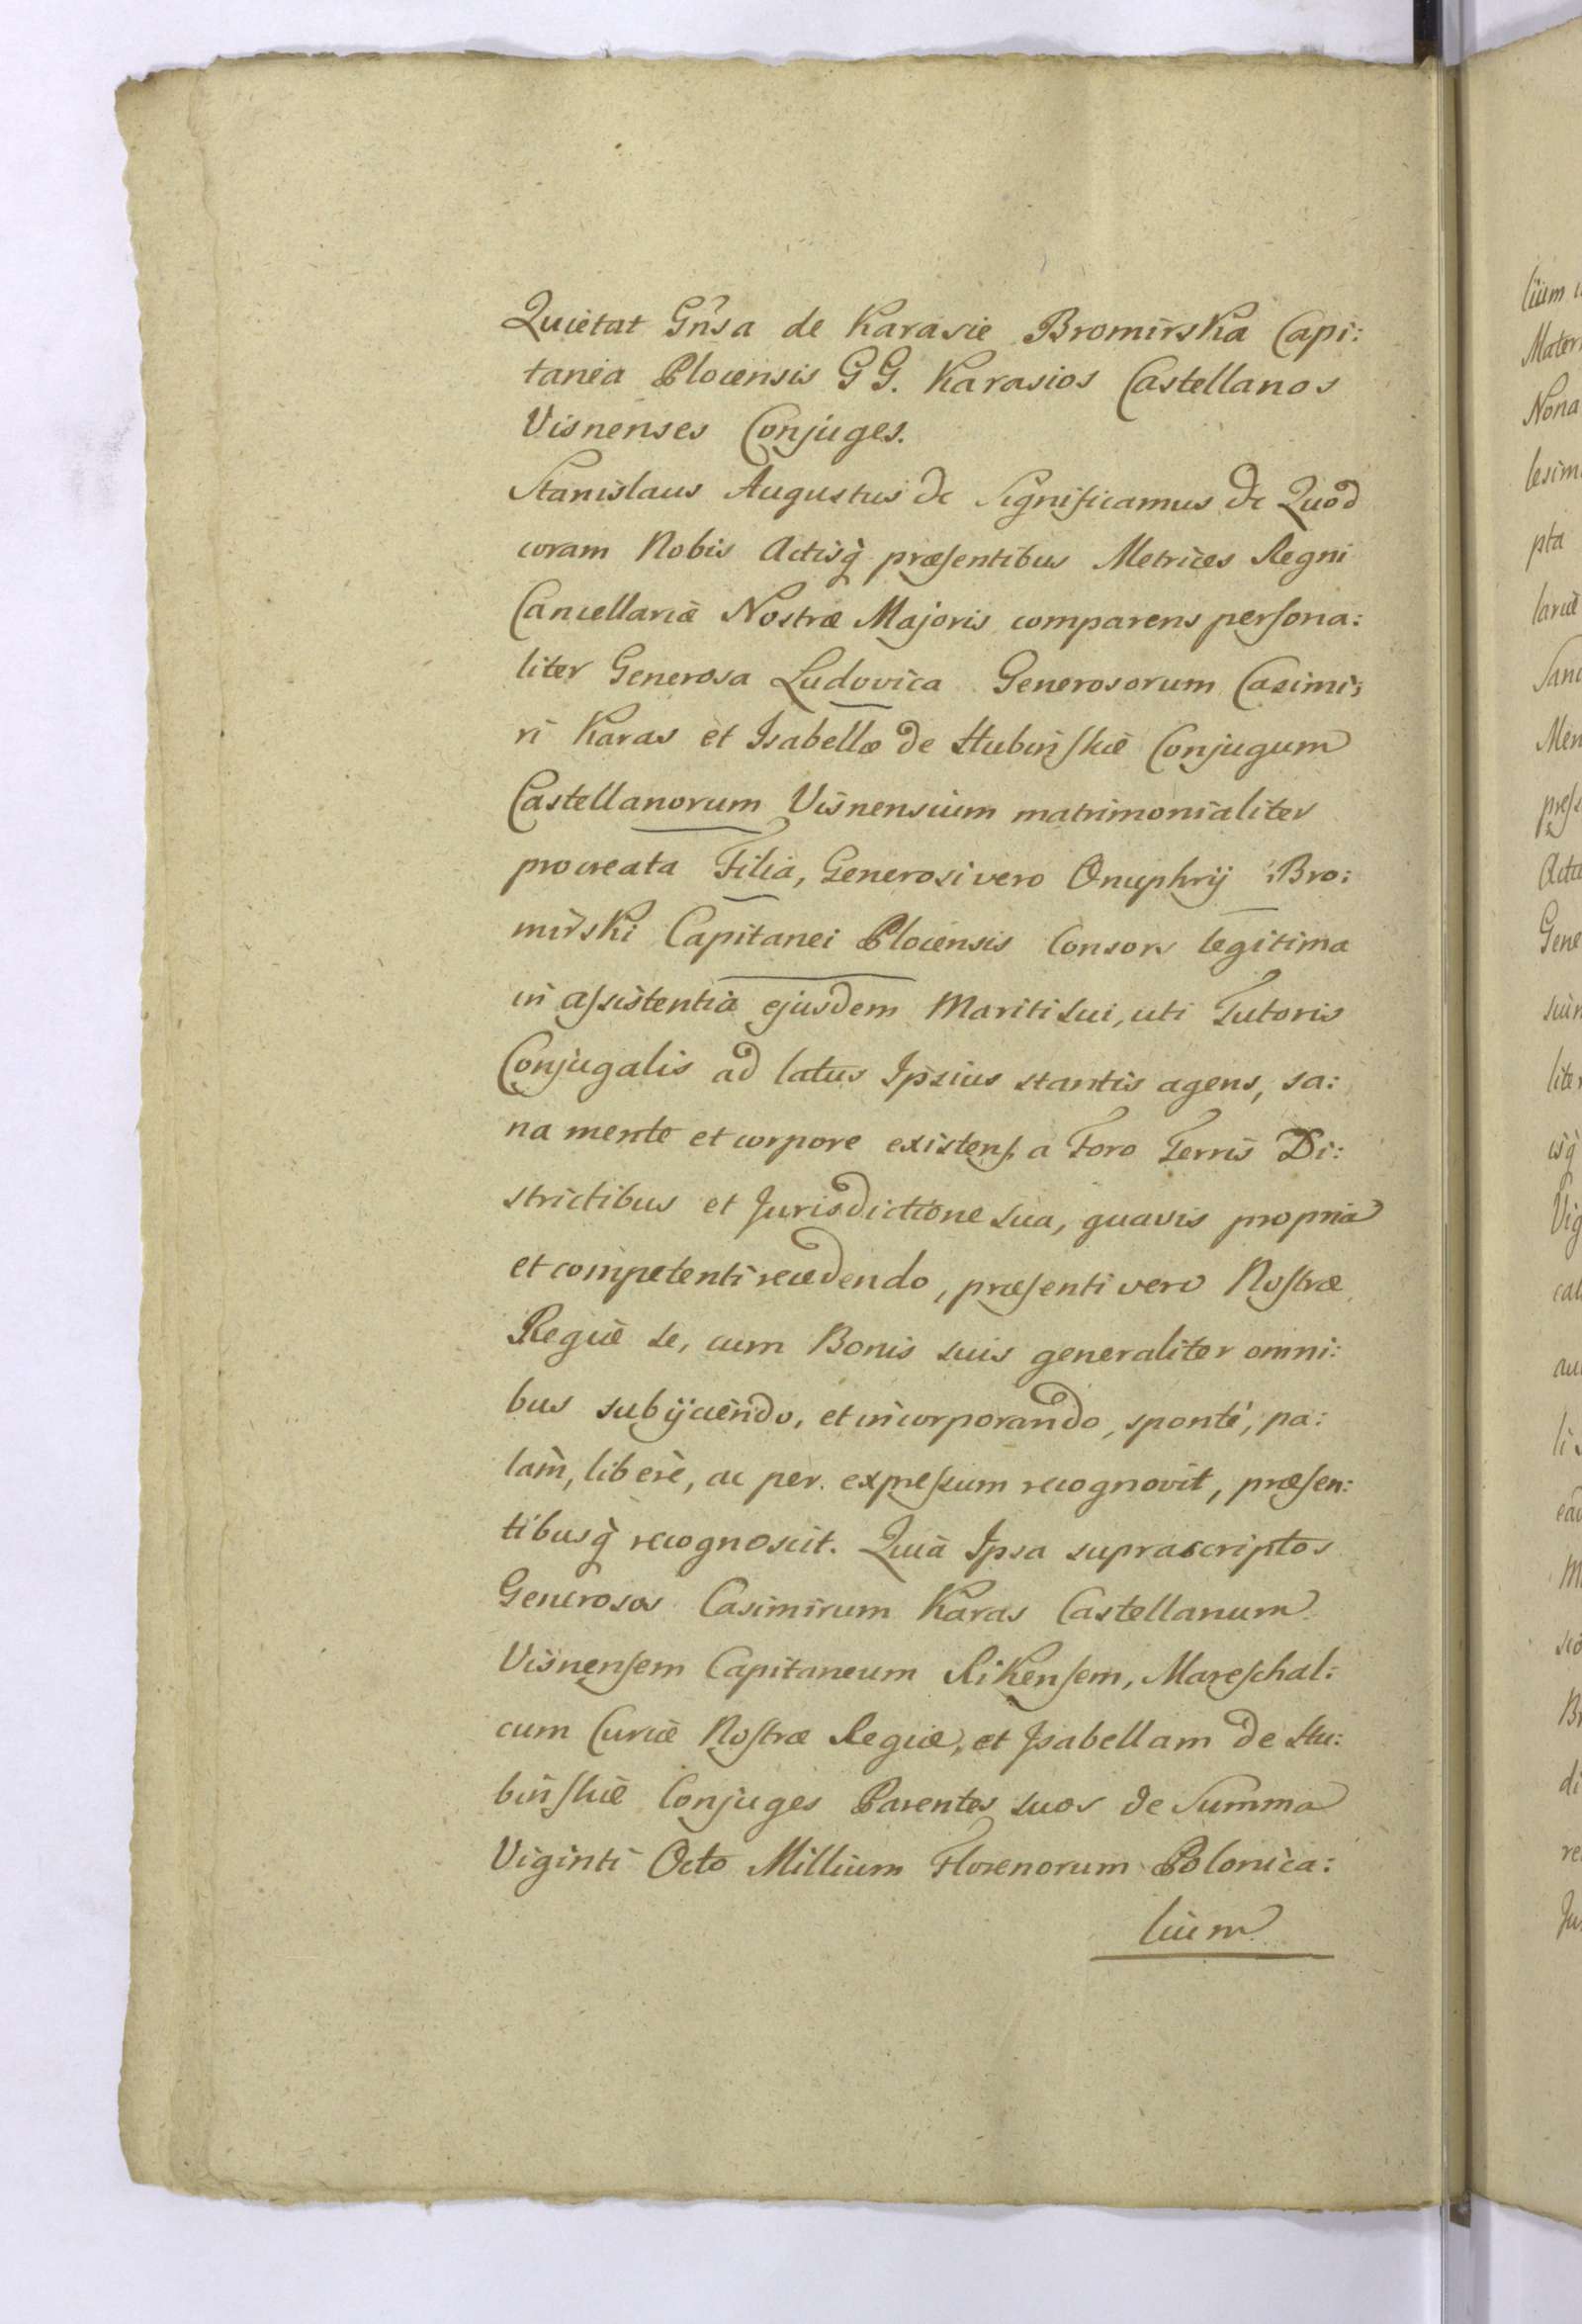 Quietat Gñsa de Karasie Bromirska Capi:
tanea Plocensis GG. Karasios Castellanos
Visnenses Conjuges.
Stanislaus Augustus &c Significamus &c Quod
coram Nobis Actisq̀ præsentibus Metrices Regni
Cancellariæ Nostræ Majoris comparens persona:
liter Generosa Ludovica Generosorum Casimi:
ri Karas et Isabellæ de Hubinskie Conjugum
Castellanorum Visnensium matrimonialiter
procreata Filia, Generosi vero Onuphrij Bro:
mirski Capitanei Plocensis Consors legitima
in assistentia ejusdem Mariti sui, uti Tutoris
Conjugalis ad latus Ipsius stantis agens, sa:
na mente et corpore existens, a Foro Terris Di:
strictibus et Jurisdictione sua, quavis propria
et competenti recedendo, præsenti vero Nostræ
Regiæ se, cum Bonis suis generaliter omni:
bus subijciendo, et incorporando, sponte, pa:
lam̀, liberè, ac per expressum recognovit, præsen:
tibusq̀ recognoscit. Quià Ipsa suprascriptos
Generosos Casimirum Karas Castellanum
Visnensem Capitaneum Rikensem, Mareschal:
cum Curiæ Nostræ Regiæ, et Isabellam de Hu:
binskie Conjuges Parentes suos de Summa
Viginti Octo Millium Florenorum Polonica:
lium
lium
Mater
Nona
lesim
pta
lariæ
Sanc
Men
præse
Acta
Gene
suin
liter
isq̀
Vig
li
Br
di
re